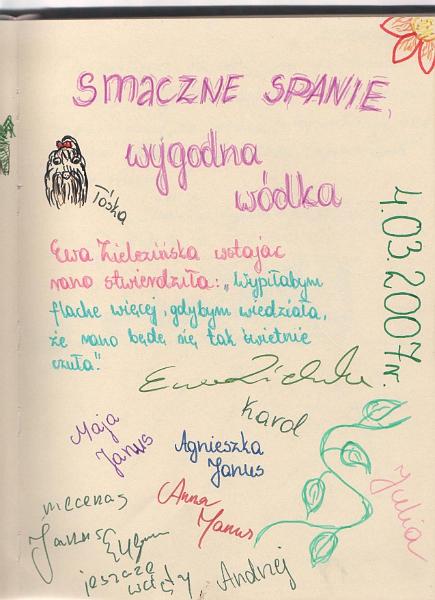 SMACZNE SPANIE,
wygodna
wódka
Tośka
4.03.2007 r.
Ewa Zielezińska wstając
rano stwierdziła: „Wypiłabym
flachę więcej, gdybym wiedziała,
że rano będę się tak świetnie
czuła."
Ewa
Karol
Maja
Janus
Agnieszka
Janus
Julia
mecenas
Janusz
Anna
Janus
jeszcze
Andrzej